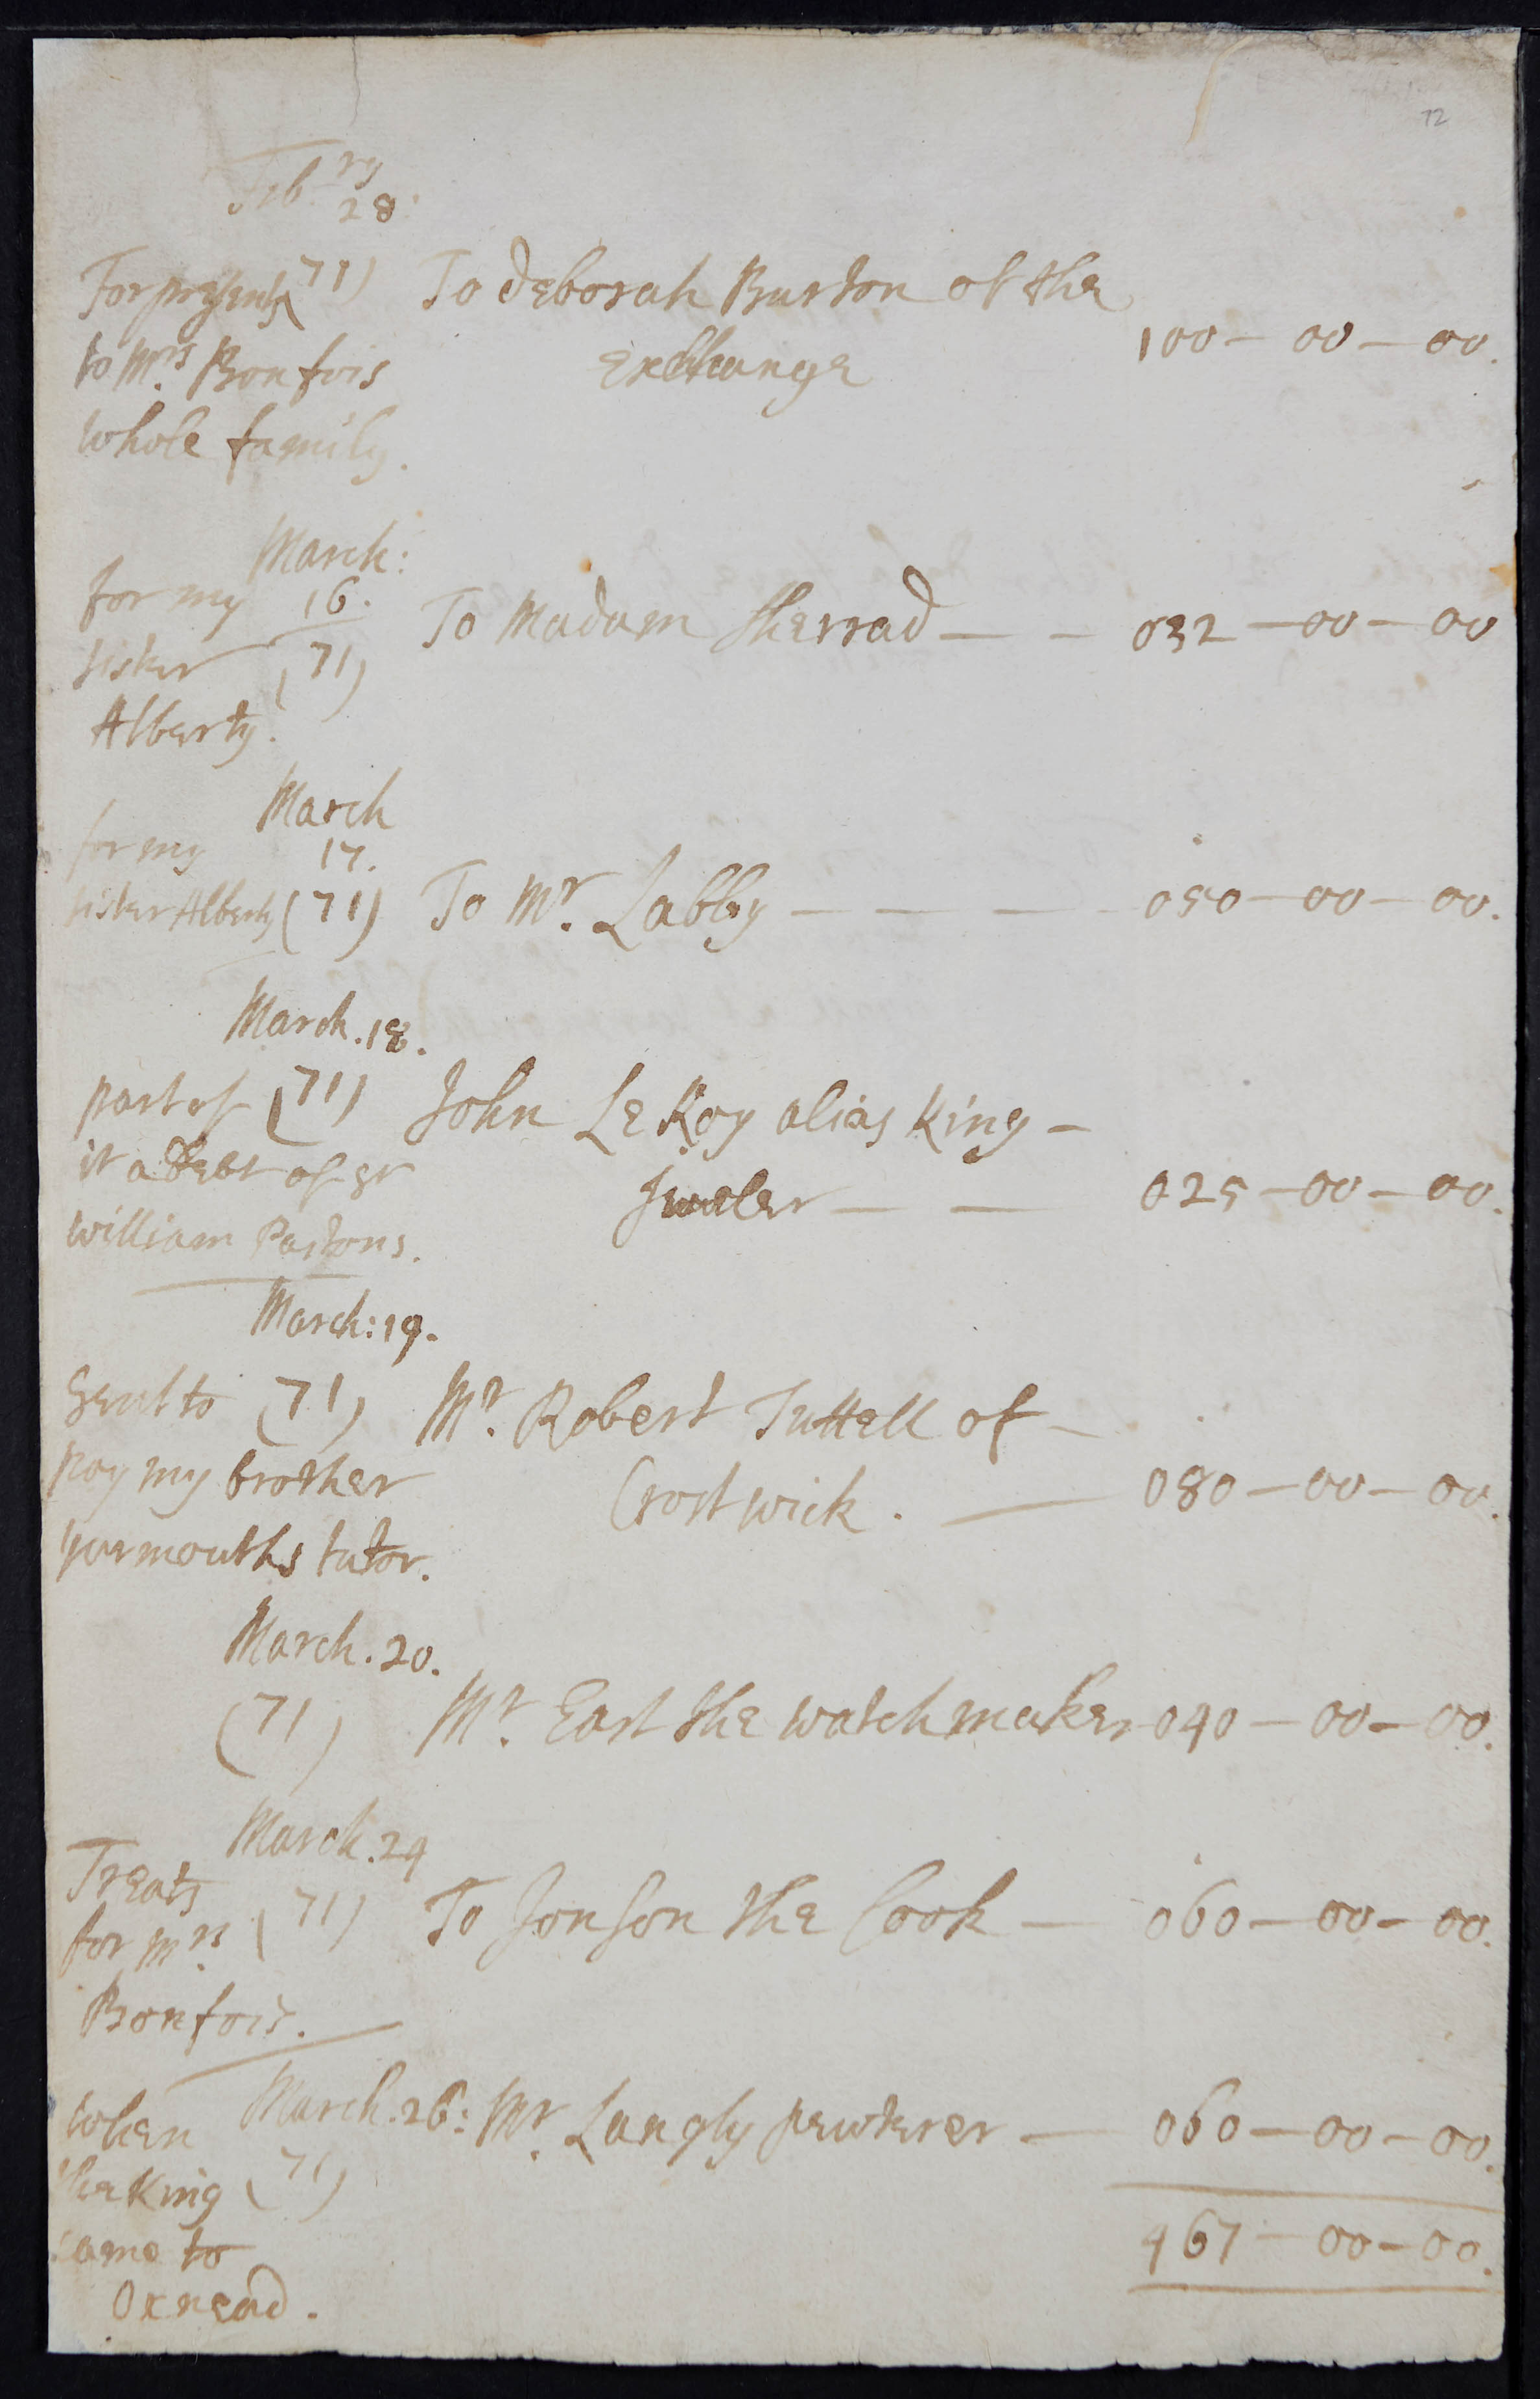 72
Feb.ry
28.
For presents (71) To Deborah Burton of the
to Mrs. Bonfois Exchange 100 - 00 - 00.
whole family.
March:
for my 16. To Madam Sherrad - - 032 - 00 - 00
sister (71)
Alberty.
March
for my 17.
sister Alberty (71) To Mr. Labby - - - 050 - 00 - 00.
March. 18.
part of (71) John Le Roy alias King -
it a Debt of Sr Jweler - - 025 - 00 - 00.
William Pastons.
March: 19.
Sent to (71) Mr. Robert Tuttell of -
pay my brother Crostwick. - 080 - 00 - 00.
yarmouths tutor.
March. 20.
(71) Mr. East the watchmaker 040 - 00 - 00.
March. 24
Treats
for Mrs. (71) To Jonson the Cook - 060 - 00 - 00.
Bonfois.
when March. 26: Mr. Langly pewterer - 060 - 00 - 00.
the King (71)
came to 467 - 00 - 00.
Oxnead.